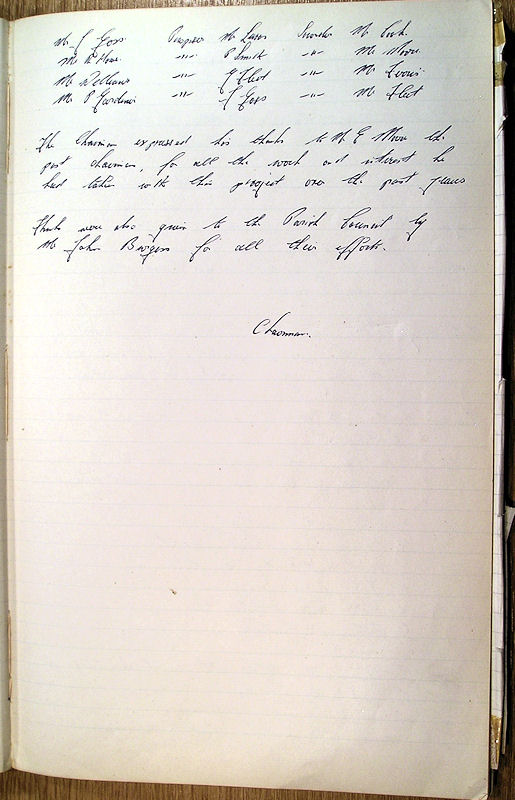 Mr J Goss Proposer Mr Seconder Mr Cook
Mr R Howe -"- P Smith -"- Mr Moore
Mr Williams -"- G Fleet -"- Mr Travis
Mr P Gardiner -"- J Goss -"- Mr Fleet
The Chairman expressed his thanks to Mr E Moore the
past chairman, for all the work and interest he
had taken with this project over the past years
Thanks were also given to the Parish Council by
Mr John Burgess for all their efforts.
Chairman.